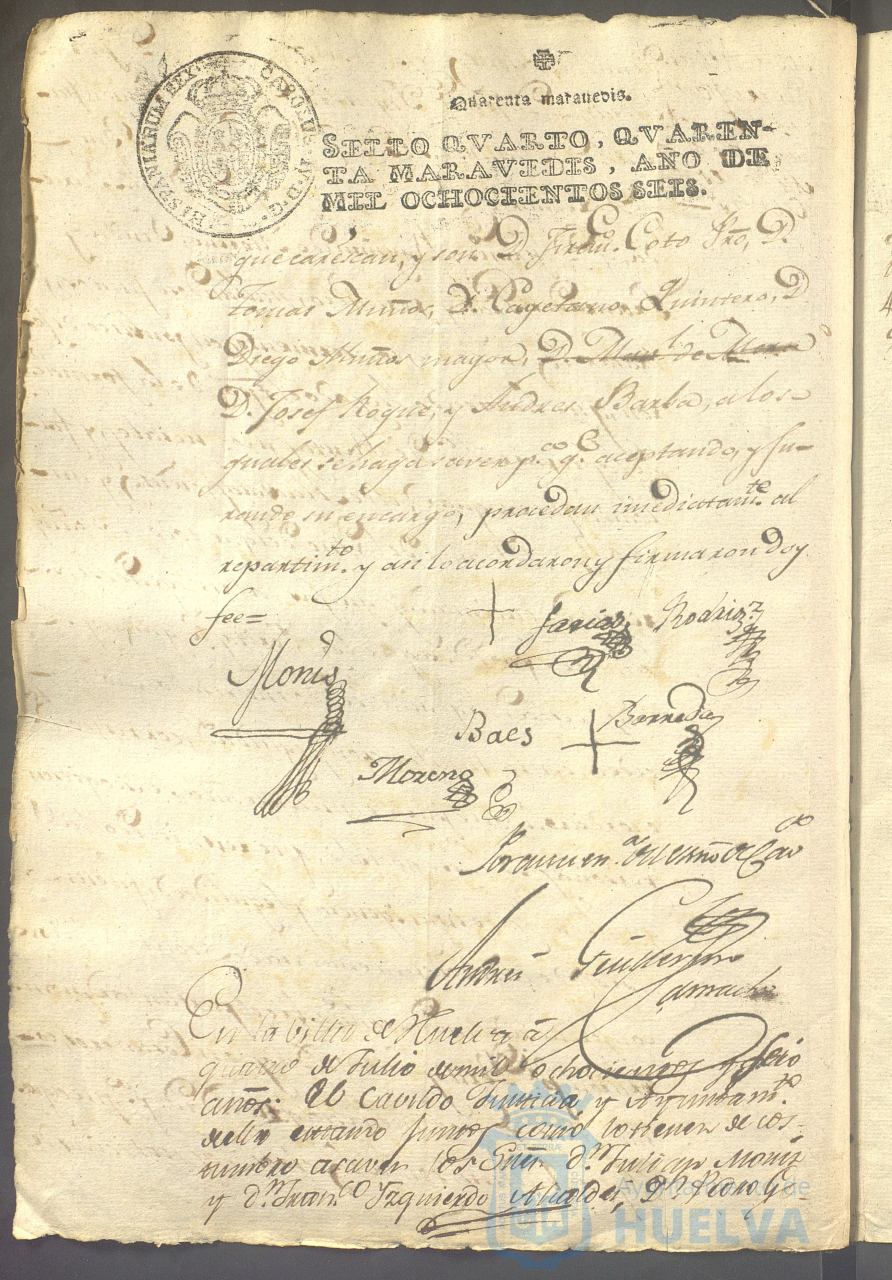 CAROLUS IV D. G. HISPANIARUM REX
Quarenta maravedis.
SELLO QVARTO, QVAREN-
TA MARAVEDIS, AÑO DE
MIL OCHOCIENTOS SEIS.
que carescan, y son D. Fran.co Coto Pro, D.
Tomas Muños, D. Cayetano Quintero, D
Diego Muños mayor, D. Man.l de Mora
D. Josef Roque, y Andres Barba, a los-
quales se haga saver p.a q.e aceptando, y ju-
rando su encargo, procedan imediatam.te al
repartim.to y asi lo acordaron y firmaron doy
fee=
farias Rodrig.z
Monis
Baes Barreda
Moreno
Andres Guillermo
Camacho
En la villa de Huelva a
quatro de Julio de mil ochocientos y seis
años: El Cavildo Justicia, y Ayuntam.to
de ella estando juntos como lo tienen de cos-
tumbre a saver los Señ.s d.n Julian Moniz
y d.n Fran.co Yzquierdo Alcaldes, D.n Pedro G
Ayuntamiento de
HUELVA